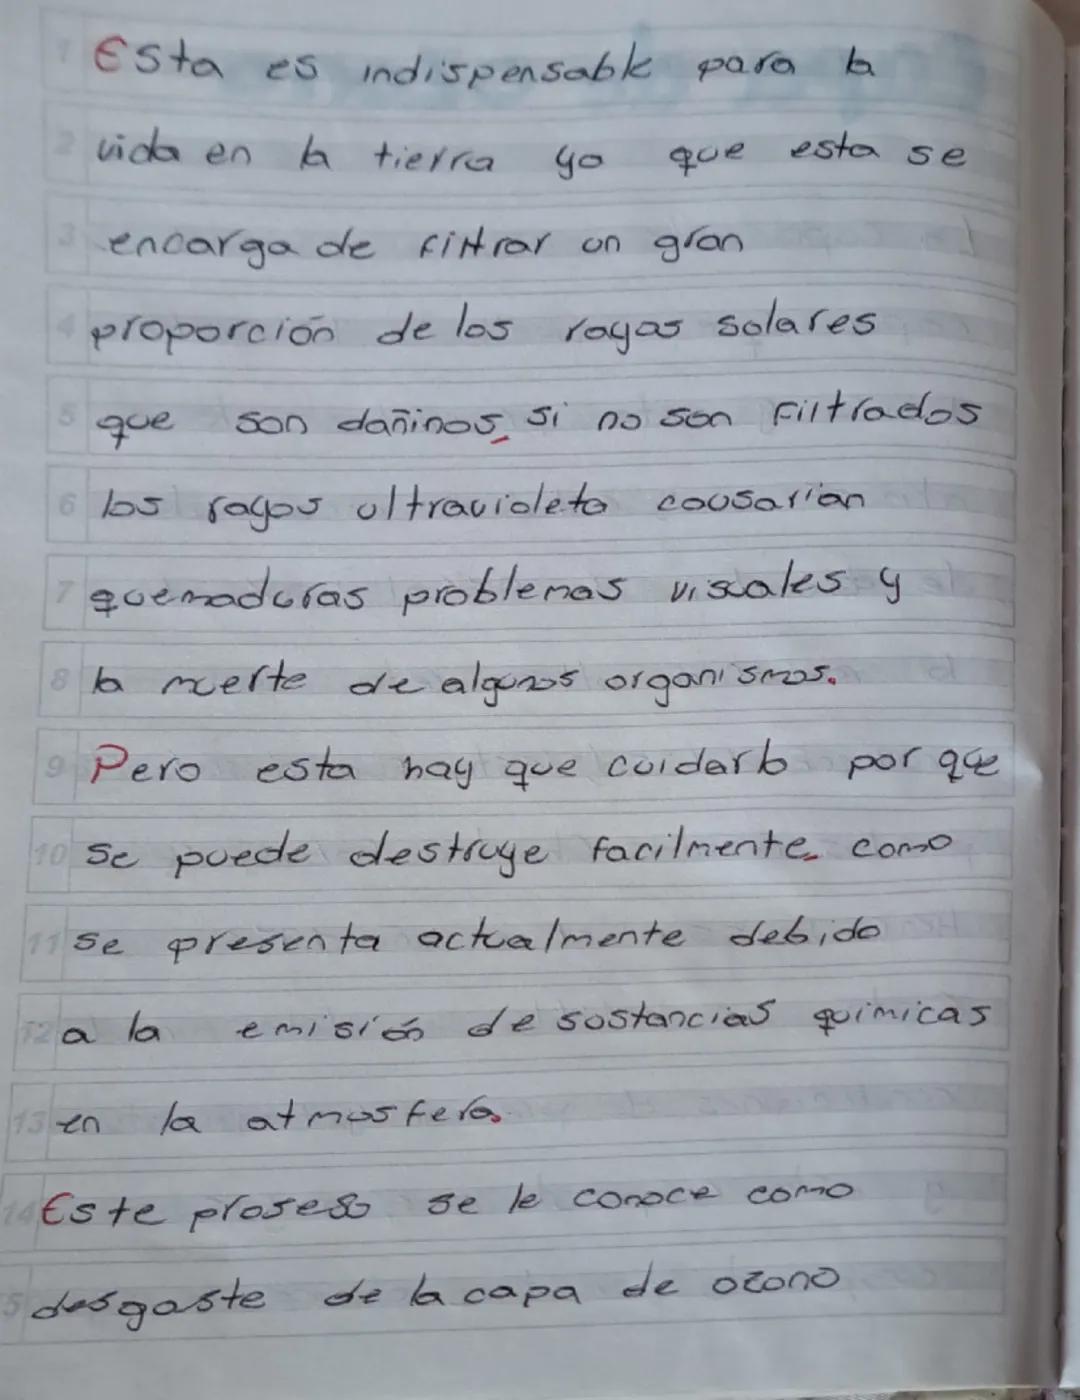 Esta es indispensable para la
vida en la tierra ya que esta se
encarga de filtrar un gran
proporción de los rayos solares
que son dañinos, si no son filtrados
los rayos ultravioleta causarían
quemaduras problemas visuales y
la muerte de algunos organismos.
Pero esta hay que cuidarlo por que
se puede destruye facilmente, como
se presenta actualmente debido
a la emisión de sustancias quimicas
en la atmosfera.
Este proseso se le conoce como
desgaste de la capa de ozono